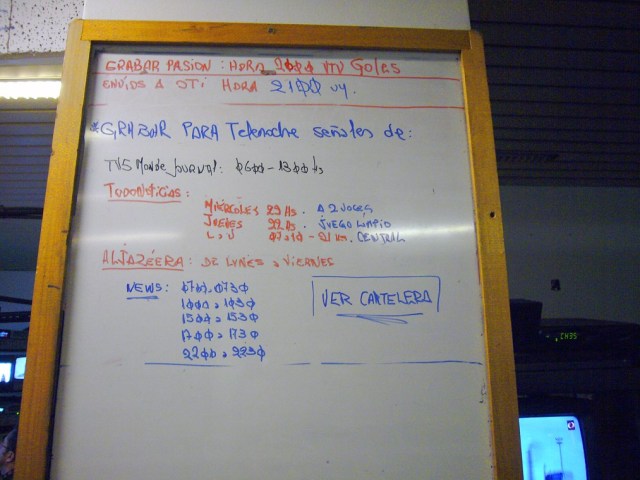 GRABAR PASION : HORA 2000 VTV Goles
ENVIOS A OTI HORA 2100 UY.
*GRABAR PARA Telenoche señales de:
TV5 Monde Journal: 0600 - 1300 hs
TODONOTICIAS:
MIERCOLES 23 Hs. A 2 VOCES
JUEVES 22 Hs. JUEGO LIMPIO
L a J - 21 hs. CENTRAL
ALJAZEERA: DE LUNES a VIERNES
NEWS: 0700 a 0730
1000 a 1030
1500 a 1530
1700 a 1730
2200 a 2230
VER CARTELERA
CH35